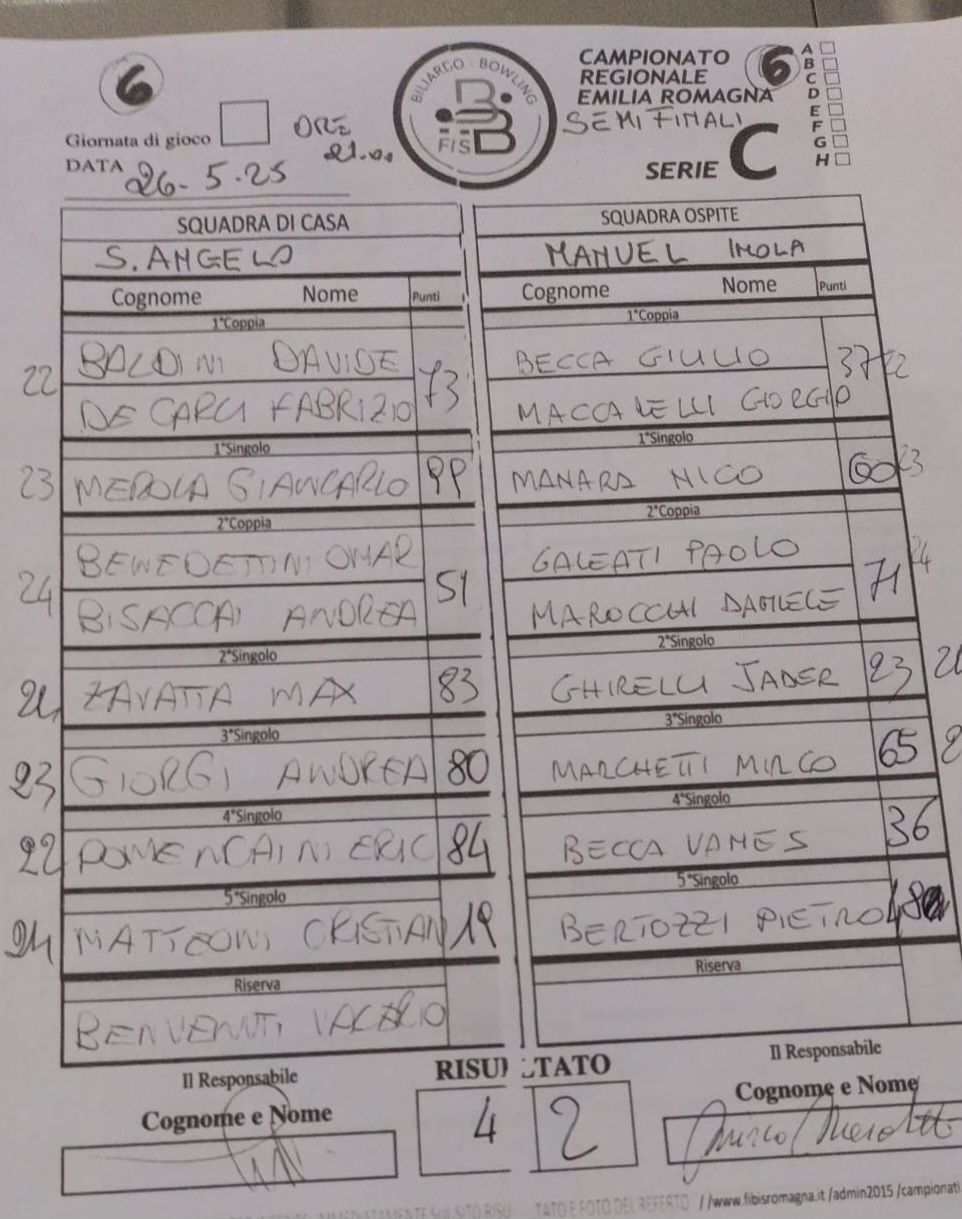 6
Giornata di gioco
ORE 21.00
DATA 26-5.25
BILIARDO - BOWLING
FISBB
CAMPIONATO
REGIONALE
EMILIA ROMAGNA
6
SEMIFINALI
SERIE C
A
B
C
D
E
F
G
H
SQUADRA DI CASA SQUADRA OSPITE
S. ANGELO MANUEL IMOLA
Cognome Nome Punti Cognome Nome Punti
1°Coppia 1°Coppia
22 BALDINI DAVIDE 73 BECCA GIULIO 37 22
DE CARLI FABRIZIO MACCARELLI GIORGIO
1°Singolo 1°Singolo
23 MEROLA GIANCARLO 99 MANARA NICO 60 23
2°Coppia 2°Coppia
24 BENEDETTINI OMAR 51 GALEATI PAOLO 71 24
BISACCHI ANDREA MAROCCHI DANIELE
2°Singolo 2°Singolo
24 ZAVATTA MAX 83 GHIRELLI JADER 23
3°Singolo 3°Singolo
23 GIORGI ANDREA 80 MARCHETTI MIRCO 65
4°Singolo 4°Singolo
22 DOMENICAINI ERIC 84 BECCA VAMES 36
5°Singolo 5°Singolo
24 MATTEONI CRISTIAN 19 BERTOZZI PIETRO 48
Riserva Riserva
BENVENUTI VALERIO
Il Responsabile RISULTATO Il Responsabile
Cognome e Nome 4 2 Cognome e Nome
Mirco
TATO E FOTO DEL REFERTO //www.fibisromagna.it /admin2015 /campionati